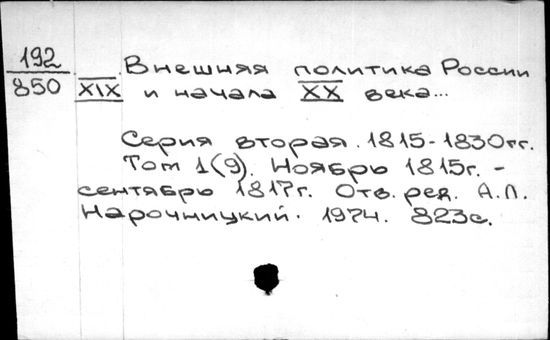 192
850
Внешняя политика России
XIX и начала XX века...
Серия вторая. 1815-1830гг.
Том 1(9). Ноябрь 1815г. -
сентябрь 1817г. Отв. ред. А.Л.
Нарочницкий. 1974. 823с.